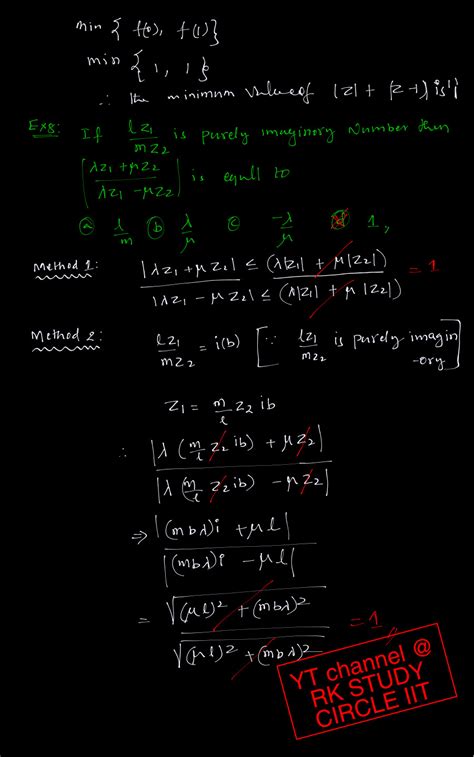 min { f(0), f(1)}
min { 1, 1 }
∴ the minimum value of |z| + |z-1| is 1
Ex8: If lz₁/mz₂ is purely imaginory Number then
|λz₁ + μz₂ / λz₁ - μz₂| is equll to
ⓐ l/m ⓑ λ/μ ⓒ -λ/μ ⓓ 1,
Method 1: |λz₁ + μz₂| ≤ (λ|z₁| + μ|z₂|) / |λz₁ - μz₂| ≤ (λ|z₁| + μ|z₂|) = 1
Method 2: lz₁/mz₂ = i(b) [∵ lz₁/mz₂ is purely imagin
-ory]
z₁ = m/l z₂ ib
∴ |λ (m/l z₂ ib) + μz₂| / |λ (m/l z₂ ib) - μz₂|
⇒ |(mbλ)i + μl| / |(mbλ)i - μl|
= √(μl)² + (mbλ)² / √(μl)² + (mbλ)² = 1
YT channel @
RK STUDY
CIRCLE IIT